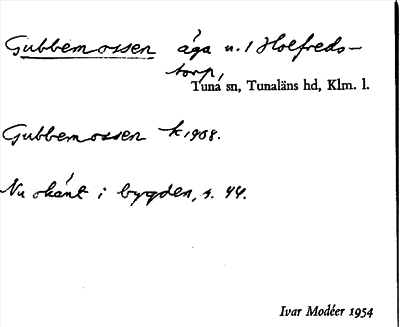 Gubbemossen äga u. / Holfreds-
torp,
Tuna sn, Tunaläns hd, Klm. l.
Gubbemossen k 1908.
Nu okänt i bygden, s. 44.
Ivar Modéer 1954